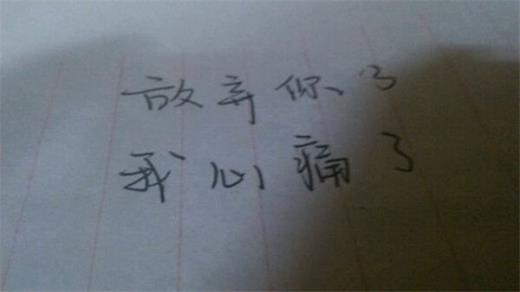 放弃你了
我心痛了